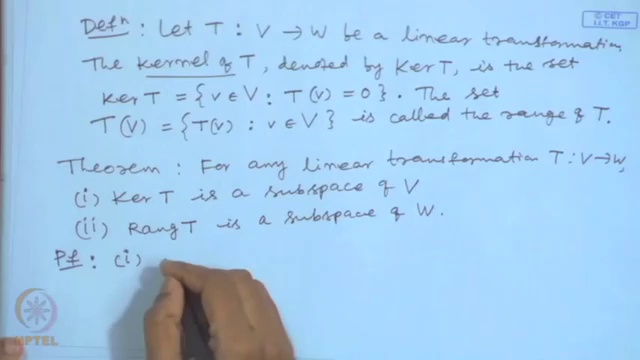 © CET
I.I.T. KGP
Defⁿ : Let T : V → W be a linear transformation
The Kernel of T, denoted by Ker T, is the set
Ker T = {v ∈ V : T(v) = 0}. The set
T(V) = {T(v) : v ∈ V} is called the range of T.
Theorem : For any linear transformation T : V → W,
(i) Ker T is a subspace of V
(ii) Rang T is a subspace of W.
Pf : (i)
NPTEL